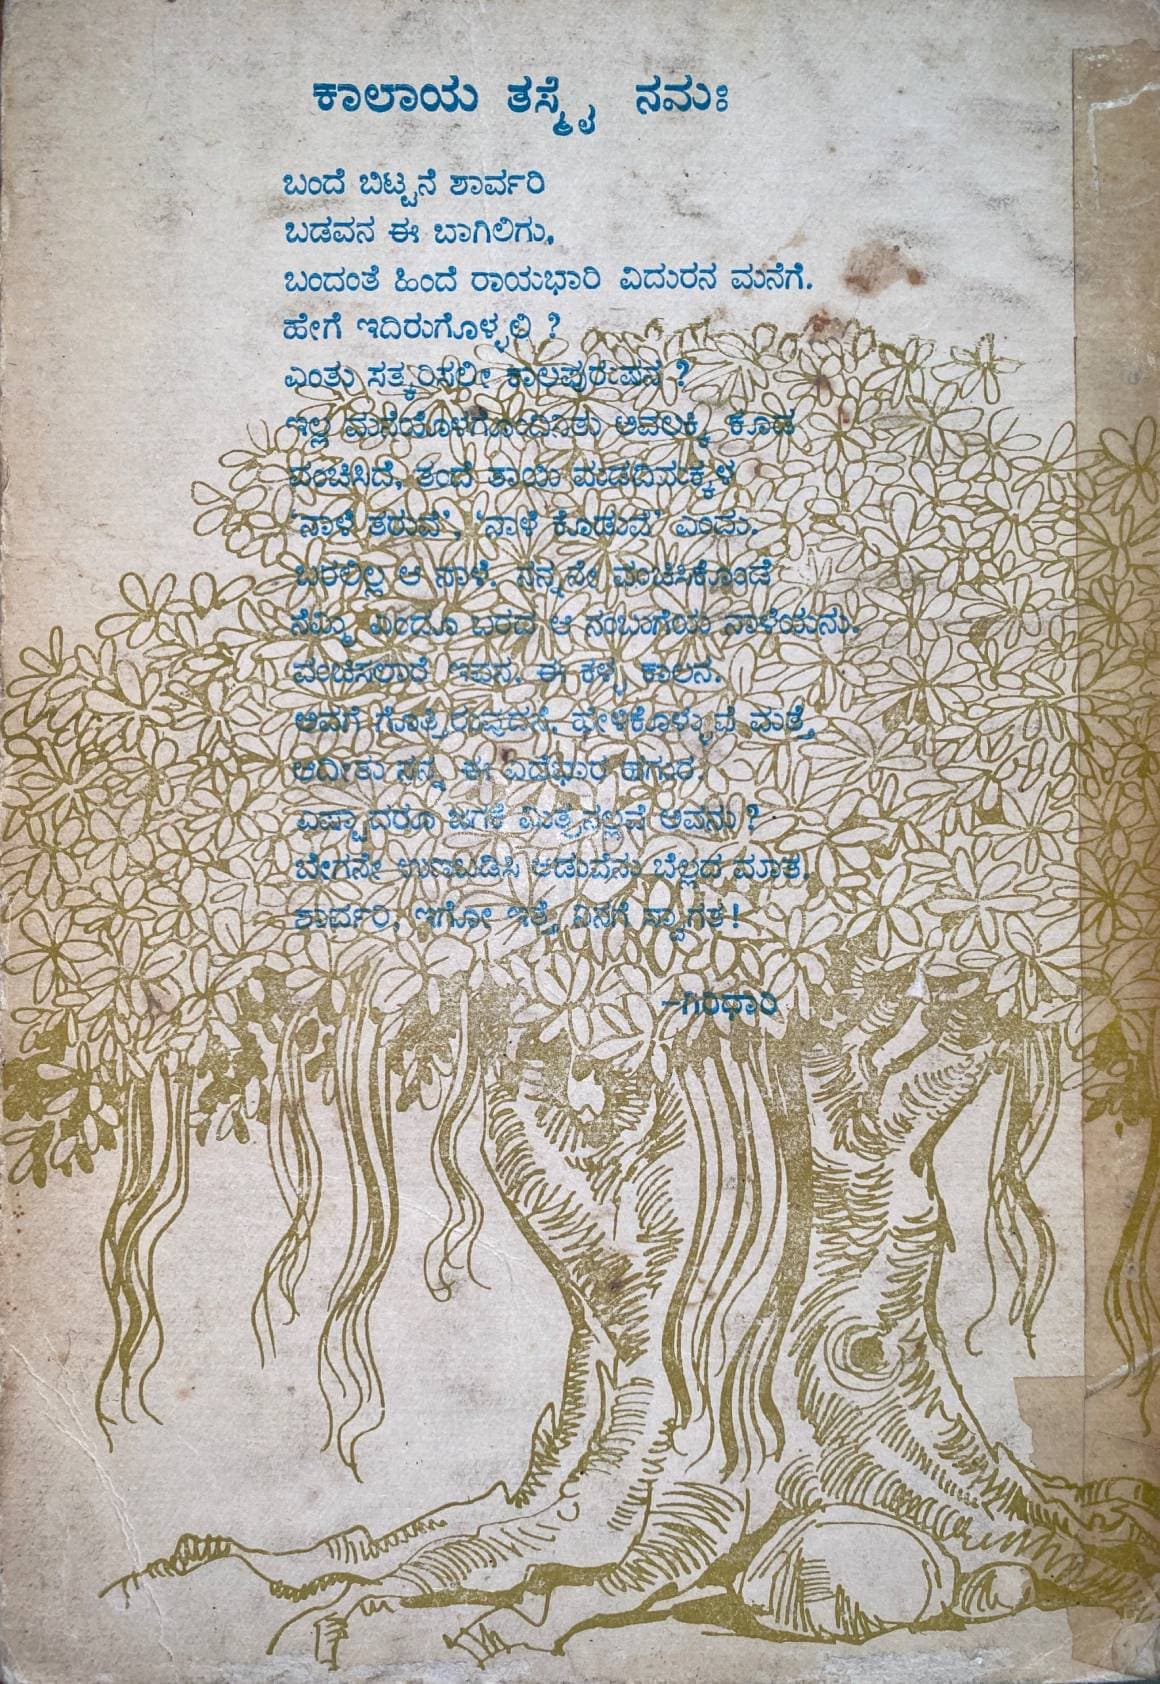 ಕಾಲಾಯ ತಸ್ಮೈ ನಮಃ
ಬಂದೆ ಬಿಟ್ಟನೆ ಶಾರ್ವರಿ
ಬಡವನ ಈ ಬಾಗಿಲಿಗು,
ಬಂದಂತೆ ಹಿಂದೆ ರಾಯಭಾರಿ ವಿದುರನ ಮನೆಗೆ.
ಹೇಗೆ ಇದಿರುಗೊಳ್ಳಲಿ ?
ಎಂತು ಸತ್ಕರಿಸಲೀ ಕಾಲಪುರುಷನ ?
ಇಲ್ಲ ಮನೆಯೊಳಗೊಂದಿನಿತು ಅವಲಕ್ಕಿ ಕೂಡ
ವಂಚಿಸಿದೆ, ತಂದೆ ತಾಯಿ ಮಡದಿಮಕ್ಕಳ
'ನಾಳೆ ತರುವೆ', 'ನಾಳೆ ಕೊಡುವೆ' ಎಂದು.
ಬರಲಿಲ್ಲ ಆ ನಾಳೆ. ನನ್ನನೇ ವಂಚಿಸಿಕೊಂಡೆ
ನೆಮ್ಮಿ ಎಂದೂ ಬರದ ಆ ನಂಬುಗೆಯ ನಾಳೆಯನು.
ವಂಚಿಸಲಾರೆ ಇವನ, ಈ ಕಳ್ಳ ಕಾಲನ.
ಅವಗೆ ಗೊತ್ತಿರುವುದನೆ, ಹೇಳಿಕೊಳ್ಳುವೆ ಮತ್ತೆ,
ಆದೀತು ನನ್ನ ಈ ಎದೆಭಾರ ಹಗುರ.
ಎಷ್ಟಾದರೂ ಜಗಕೆ ಮಿತ್ರನಲ್ಲವೆ ಅವನು ?
ಬೇಗನೇ ಉಣಬಡಿಸಿ ಆಡುವೆನು ಬೆಲ್ಲದ ಮಾತ.
ಶಾರ್ವರಿ, ಇಗೋ ಇತ್ತೆ ನಿನಗೆ ಸ್ವಾಗತ !
–ಗಿರಿಧಾರಿ